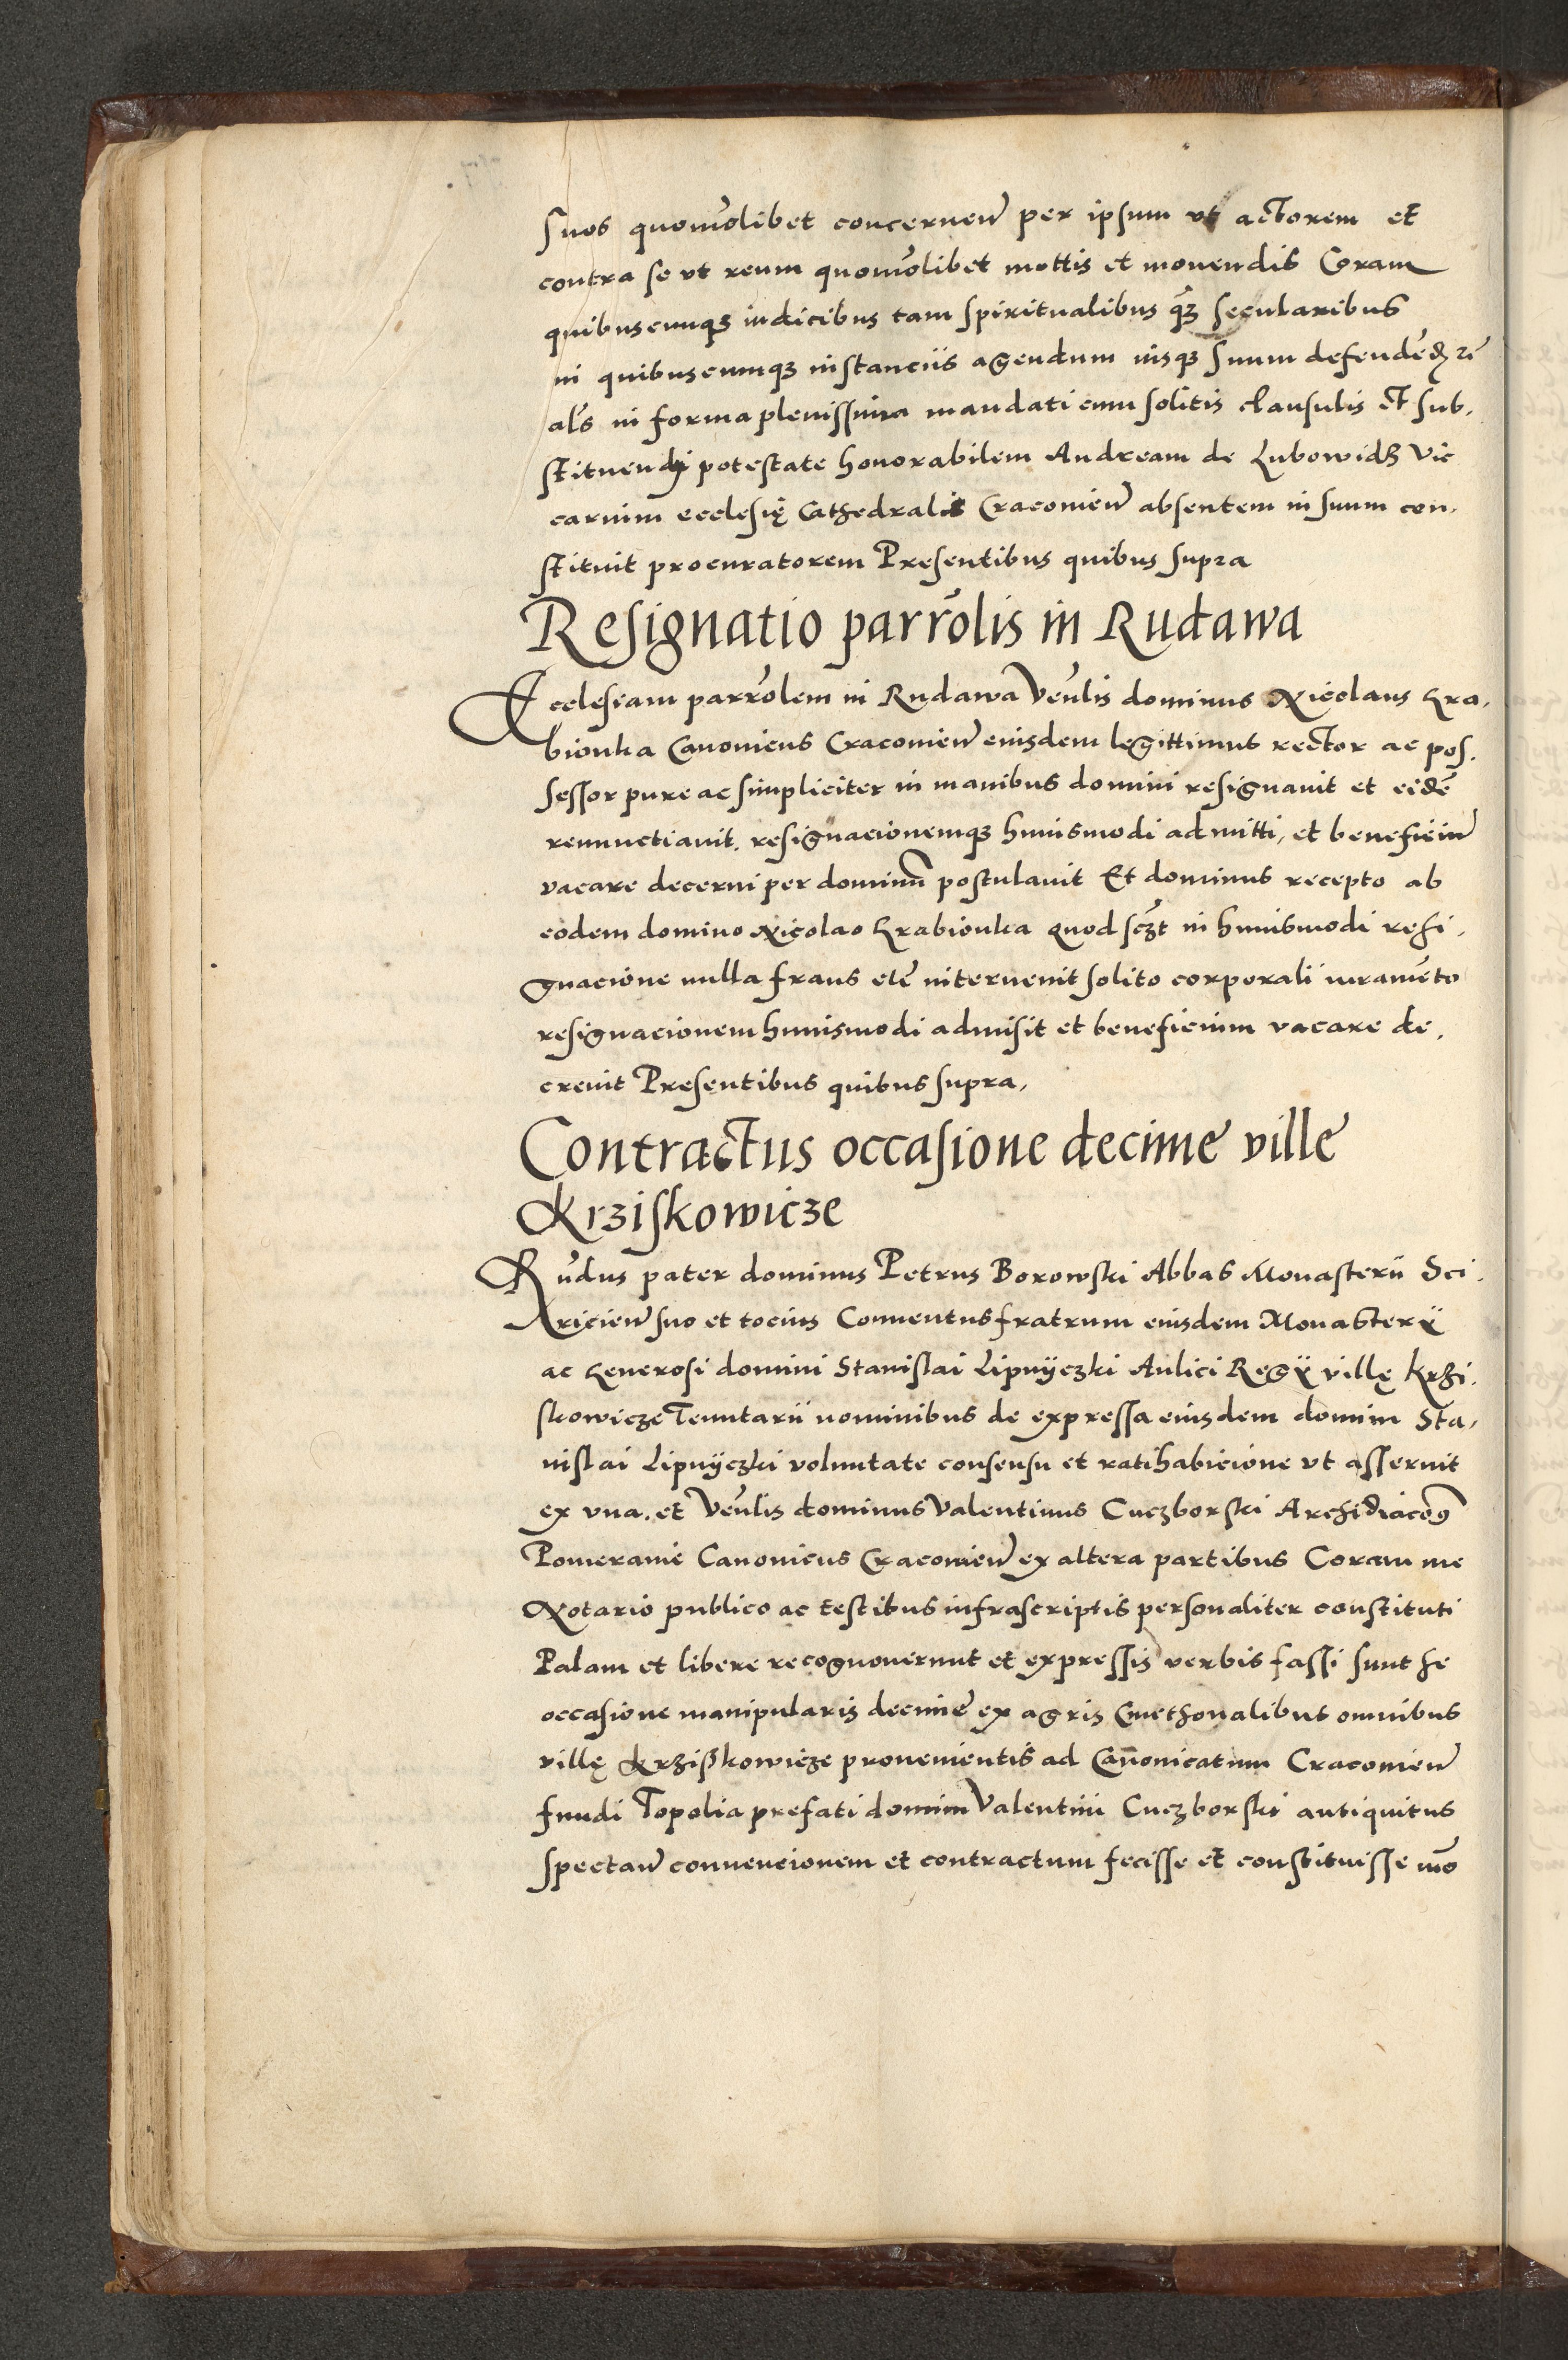 suos quomōlibet concernen̄ per ipsum ut actorem et
contra se vt reum quomōlibet mottis et mouendis Coram
quibuscunqꝫ iudicibus tam spiritualibus qꝫ̄ secularibus
in quibuscunqꝫ instanciis agendum iusqꝫ suum defendēd ꝛc̄
als̄ in forma plenissima mandati cum solitis clausulis et sub,
stituendi potestate honorabilem Andream de Lubowidz Vic
carium ecclesię Cathedralis Cracouien̄ absentem in suum con,
stituit procuratorem Presentibus quibus supra
Resignatio parrōlis in Rudawa
Ecclesiam parrōlem in Rudawa Ven̄lis dominus Nicolaus Gra,
bionka Canonicus Cracouien̄ eiusdem legittimus rector ac pos,
sessor pure ac simpliciter in manibus domini resignauit et eidē
renunctiauit. resignacionemqꝫ huiusmodi admitti, et beneficiū
vacare decerni per dominū postulauit Et dominus recepto ab
eodem domino Nicolao Grabionka quod scꝫt in huiusmodi resi,
gnacione nulla fraus etc̄ interuenit solito corporali iuramēto
resignacionem huiusmodi admisit et beneficium vacare de,
creuit Presentibus quibus supra,
Contractus occasione decime ville
Krziskowicze
Rūdus pater dominus Petrus Borowski Abbas Monasterii Sci,
ricien̄ suo et tocius Conuentus fratrum eiusdem Monasterÿ
ac Generosi domini Stanislai Lipnÿczki Aulici Regÿ villę Krzi,
skowicze Tenutarii nominibus de expressa eiusdem domini Sta,
nislai Lipnÿczki voluntate consensu et ratihabicione vt asseruit
ex vna, et Ven̄lis dominus Valentinus Cuczborski Archidiacoꝰ
Pomeranie Canonicus Cracouien̄ ex altera partibus Coram me
Notario publico ac testibus infrascriptis personaliter constituti
Palam et libere recognouerunt et expressis verbis fassi sunt se
occasione manipularis decime ex agris Cmethonalibus omnibus
villę Krziskowicze prouenientis ad Canonicatum Cracouien̄
fundi Topolia prefati domini Valentini Cuczborski antiquitus
spectan̄ conuencionem et contractum fecisse et constituisse mō